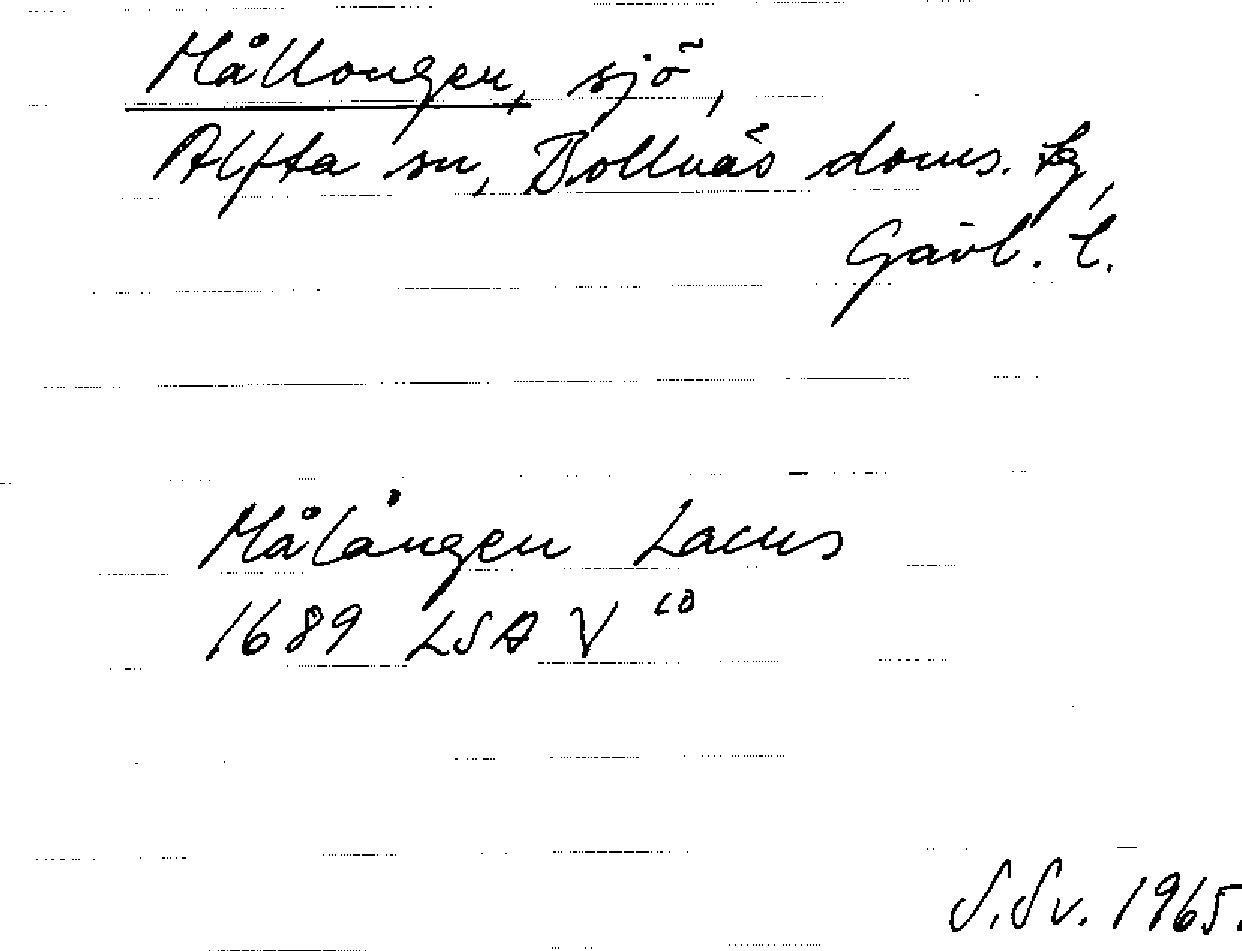 Mållongen, sjö,
Alfta sn, Bollnäs doms. tg,
Gävl. l.
Målången Lacus
1689 LSA V 10
S.Sv. 1965.